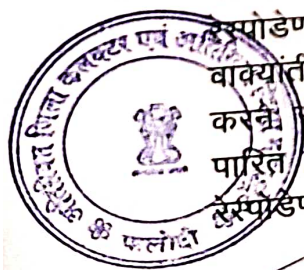 रेस्पोडेण
वाक्यांती
करने
पारित
रेस्पोडेण
अतिरिक्त जिला कलक्टर एवं अति
फलोदी